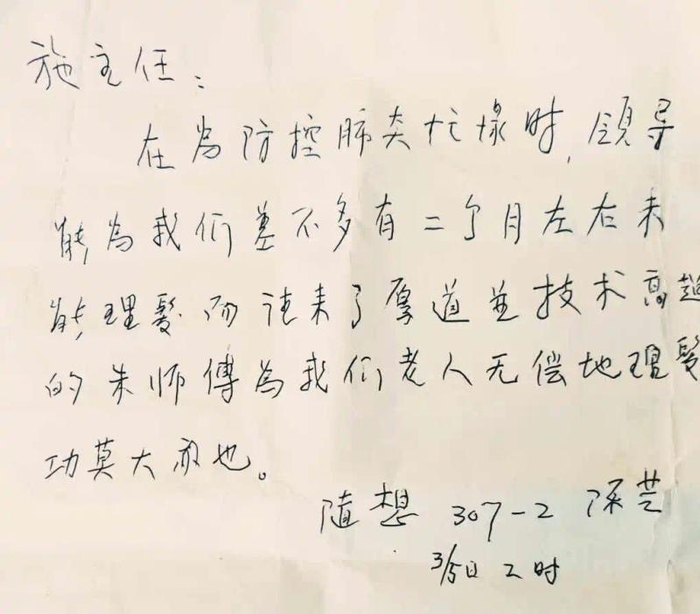 施主任：
在為防控肺炎忙碌时,领导
能為我们差不多有二个月左右未
能理髮而请来了厚道並技术高超
的朱师傅為我们老人无偿地理髮
功莫大也。
随想 307-2 陈芸
3/5日 2时